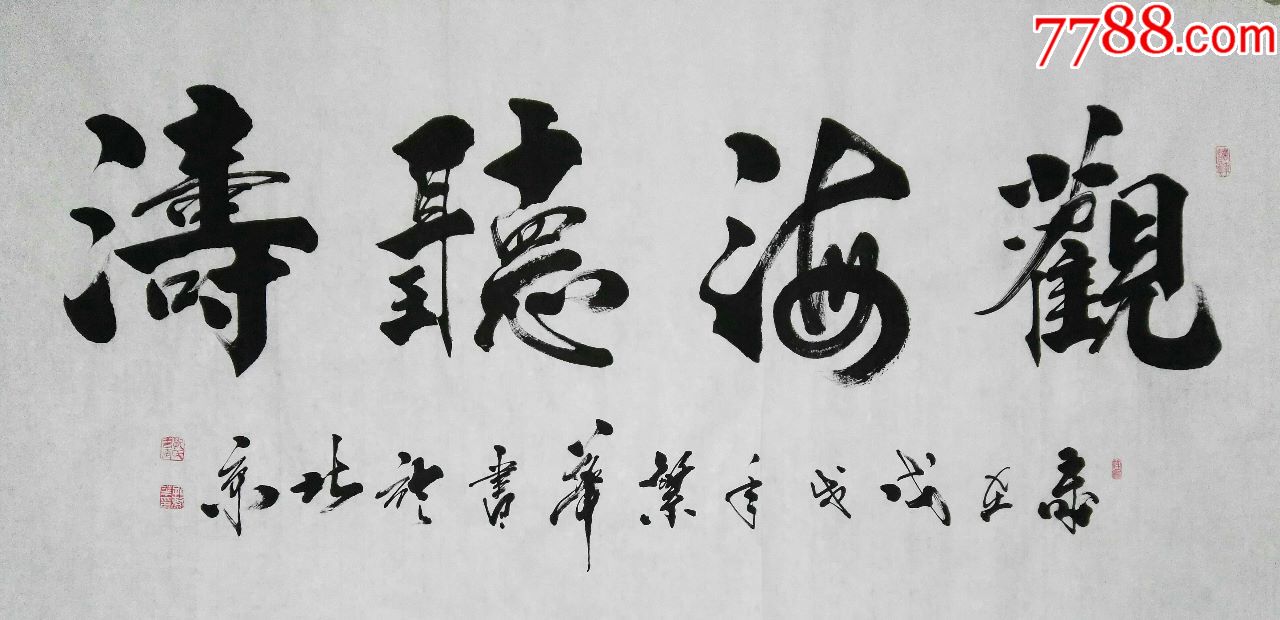 7788.com
觀海聽濤
歲在戊戌年繁華書於北京